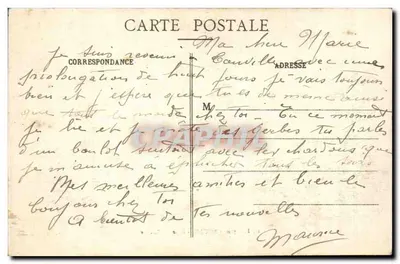 CARTE POSTALE
Ma chère Marie
CORRESPONDANCE
ADRESSE
je suis avec une
prolongation de huit jours je vais toujours
bien et j'espère que tu es de même
que tout le monde chez toi. En ce moment
je lie et gerbes tu parles
d'un boulot surtout avec les chardons que
je m'amuse à tous les soirs
M
Mes meilleures amitiés et bien le
bonjour chez toi
A bientôt de tes nouvelles
Maurice